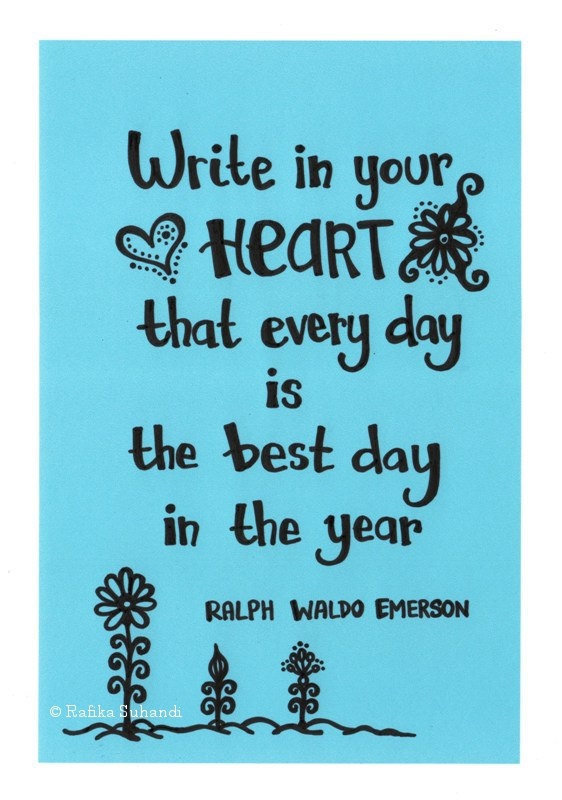 Write in your
HEART
that every day
is
the best day
in the year
RALPH WALDO EMERSON
© Rafika Suhandi